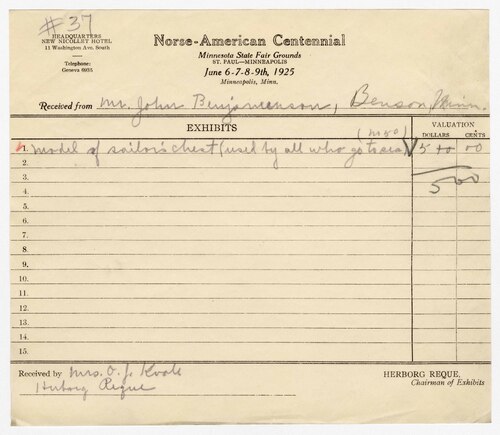 #37
HEADQUARTERS
NEW NICOLLET HOTEL
11 Washington Ave. South
Telephone:
Geneva 8935
Norse-American Centennial
Minnesota State Fair Grounds
ST. PAUL—MINNEAPOLIS
June 6-7-8-9th, 1925
Minneapolis, Minn.
Received from Mr. John Benjaminson, Benson, Minn.
EXHIBITS
VALUATION
DOLLARS CENTS
1. Model of sailor's chest (used by all who go to sea) 5 00
2.
3. 5 00
4.
5.
6.
7.
8.
9.
10.
11.
12.
13.
14.
15.
Received by Mrs. O. J.
Herborg Reque
HERBORG REQUE,
Chairman of Exhibits